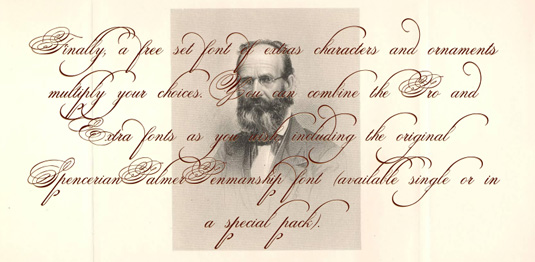 Finally, a free set font of extras characters and ornaments
multiply your choices. You can combine the Pro and
Extra fonts as you wish, including the original
SpencerianPalmerPenmanship font (available single or in
a special pack).